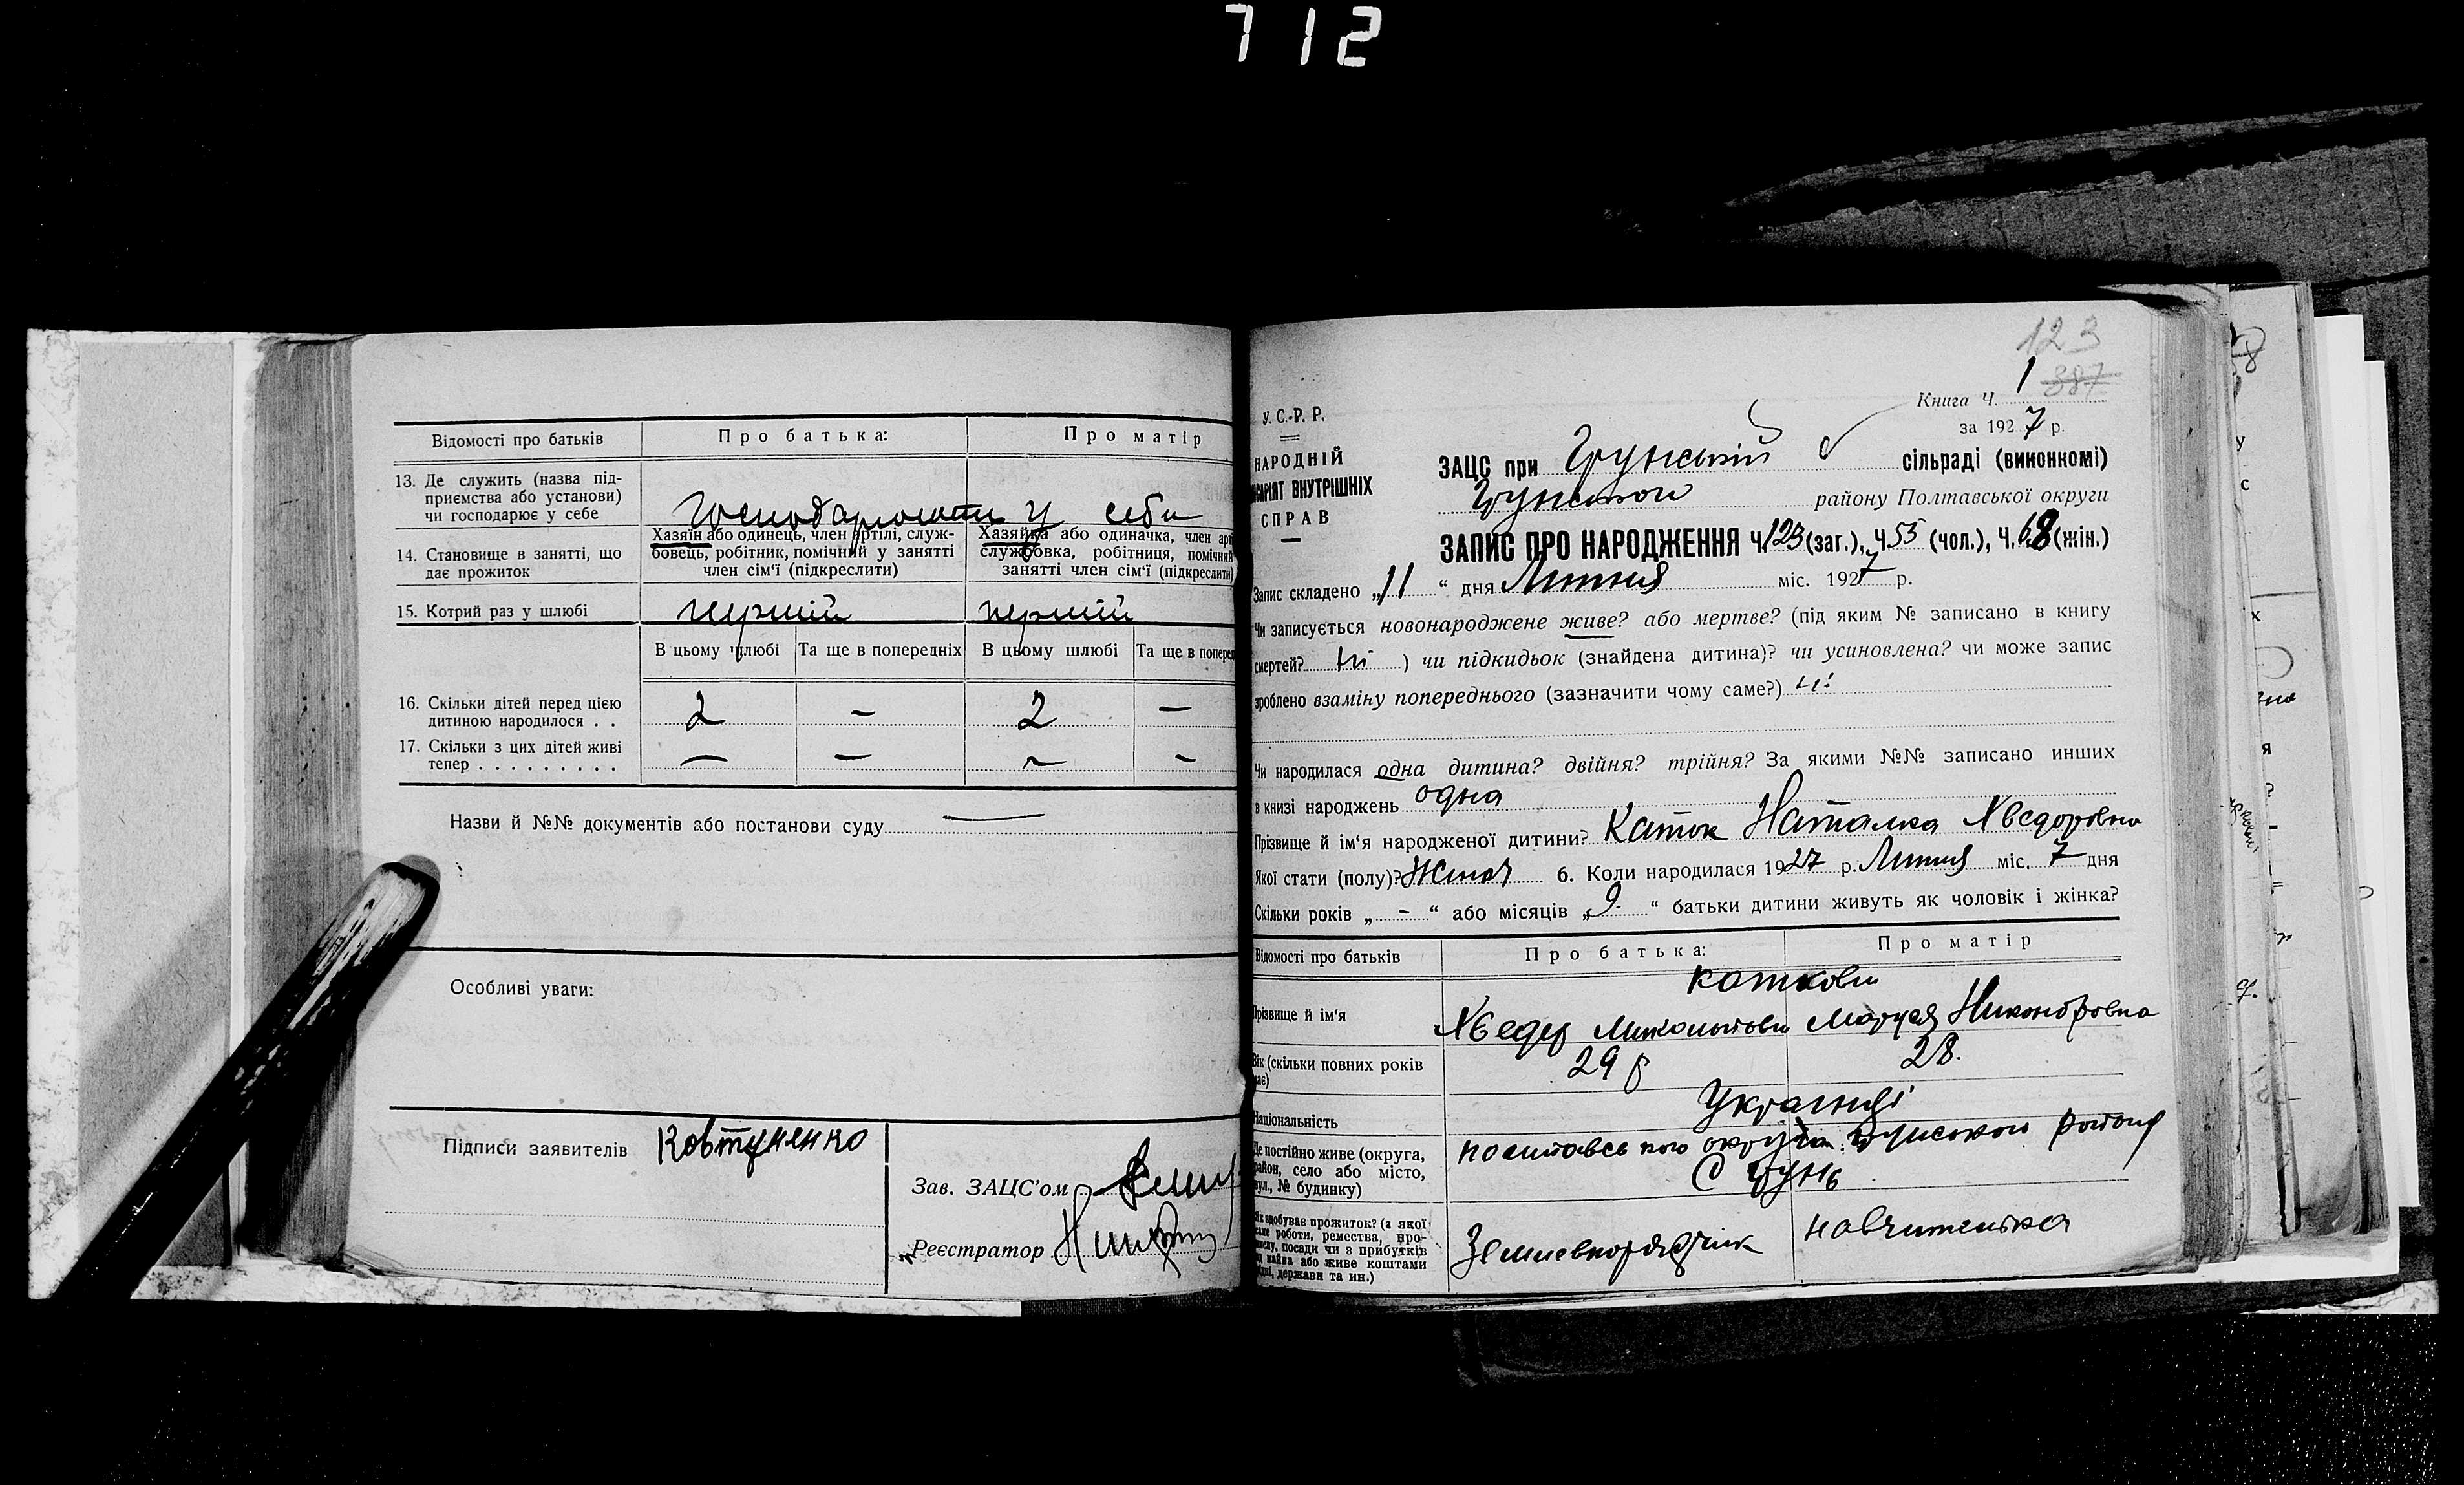 712
Відомості про батьків
Про батька:
Про матір
13. Де служить (назва під-
приємства або установи)
чи господарює у себе
Господарюють у себи
14. Становище в занятті, що
дає прожиток
Хазяїн або одинець, член артілі, служ-
бовець, робітник, помічний у занятті
член сім'ї (підкреслити)
Хазяйка або одиначка, член арт
службовка, робітниця, помічний
занятті член сім'ї (підкреслити)
15. Котрий раз у шлюбі
перший
перший
В цьому шлюбі
Та ще в попередніх
В цьому шлюбі
Та ще в поперед
16. Скільки дітей перед цією
дитиною народилося . .
2
–
2
–
17. Скільки з цих дітей живі
тепер . . . . . . . . .
–
–
–
–
Назви й №№ документів або постанови суду —
Особливі уваги:
Підписи заявителів Ковтуненко
Зав. ЗАЦС'ом
Реєстратор
123
387
Книга Ч. 1
за 1927 р.
У.С.-Р.Р.
НАРОДНІЙ
САРІЯТ ВНУТРІШНІХ
СПРАВ
ЗАЦС при Грунській сільраді (виконкомі)
Грунського району Полтавської округи
ЗАПИС ПРО НАРОДЖЕННЯ Ч.123 (заг.), Ч.55 (чол.), Ч.68 (жін.)
Запис складено „11" дня Липня міс. 1927 р.
Чи записується новонароджене живе? або мертве? (під яким № записано в книгу
смертей? ні ) чи підкидьок (знайдена дитина)? чи усиновлена? чи може запис
зроблено взаміну попереднього (зазначити чому саме?) ні
Чи народилася одна дитина? двійня? трійня? За якими №№ записано инших
в книзі народжень одна
Прізвище й ім'я народженої дитини? Каток Наталка Хведоровна
Якої стати (полу)? Жіноч 6. Коли народилася 1927 р. Липня міс. 7 дня
Скільки років „ - " або місяців „ 9. " батьки дитини живуть як чоловік і жінка?
Відомості про батьків
Про батька:
Про матір
Прізвище й ім'я
Каткови
Хведер Миколаєви
Маруся Никоноровна
Вік (скільки повних років
має)
29 р
28.
Національність
Українці
Де постійно живе (округа,
район, село або місто,
вул., № будинку)
Полтавської округи Грунського району
С Грунь
Як здобуває прожиток? (з якої
саме роботи, ремества, про-
мислу, посади чи в прибутків
од майна або живе коштами
рідні, держави та ин.)
Землевпорядчик
навчителька